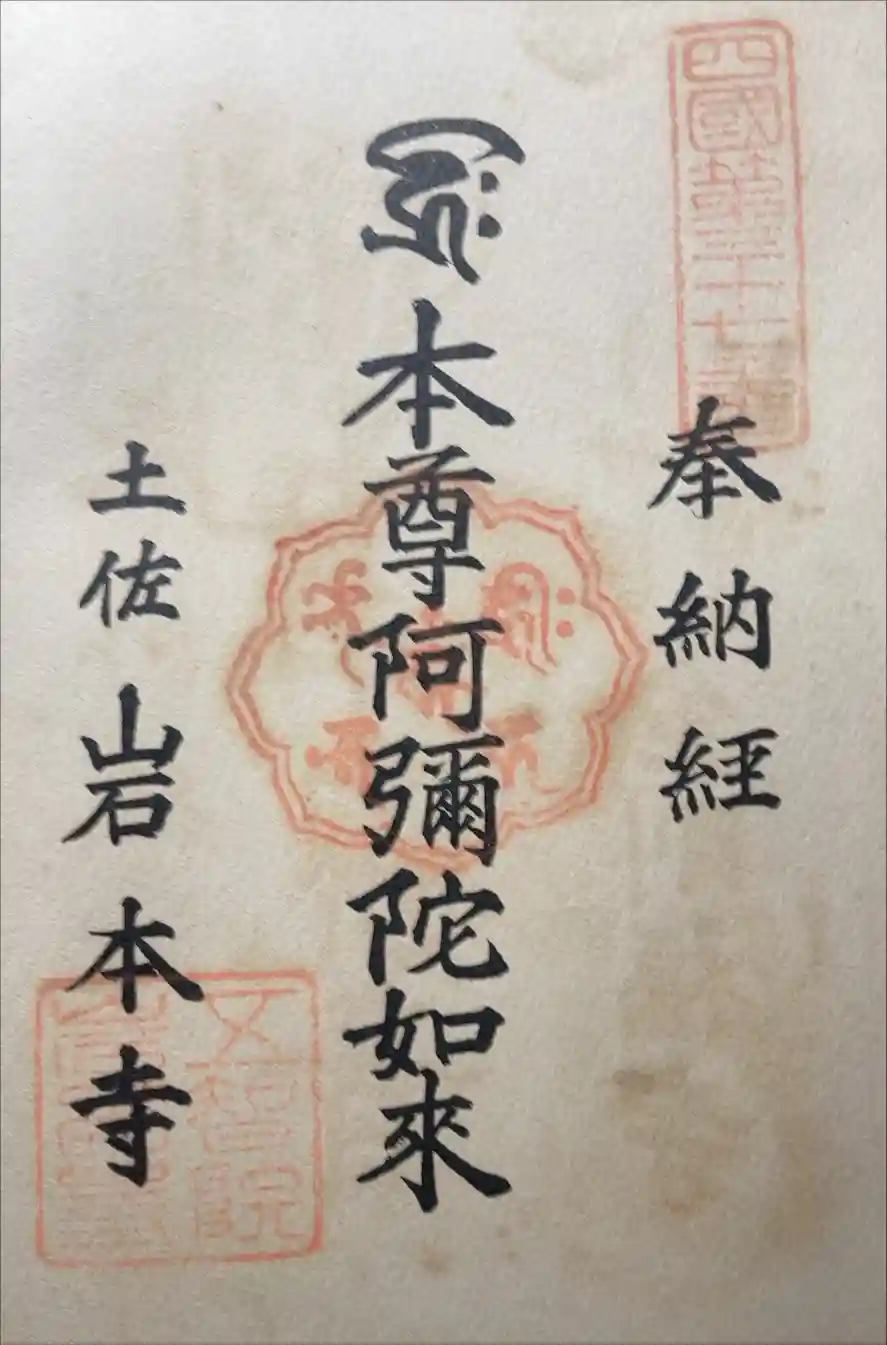 四國第三十七番
奉納経
𑖮𑖿𑖨𑖱𑖾
本尊阿彌陀如來
土佐 岩本寺
五智院